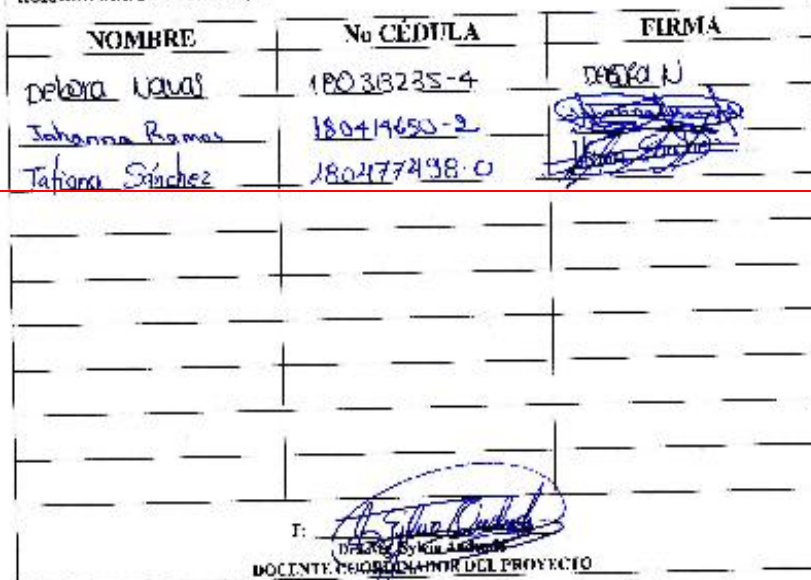 NOMBRE No CÉDULA FIRMA
Debora Navas 180313235-4 Debora N
Johanna Ramos 180414650-2
Tatiana Sánchez 180477498-0
F:
Sylvia Andrade
DOCENTE COORDINADOR DEL PROYECTO